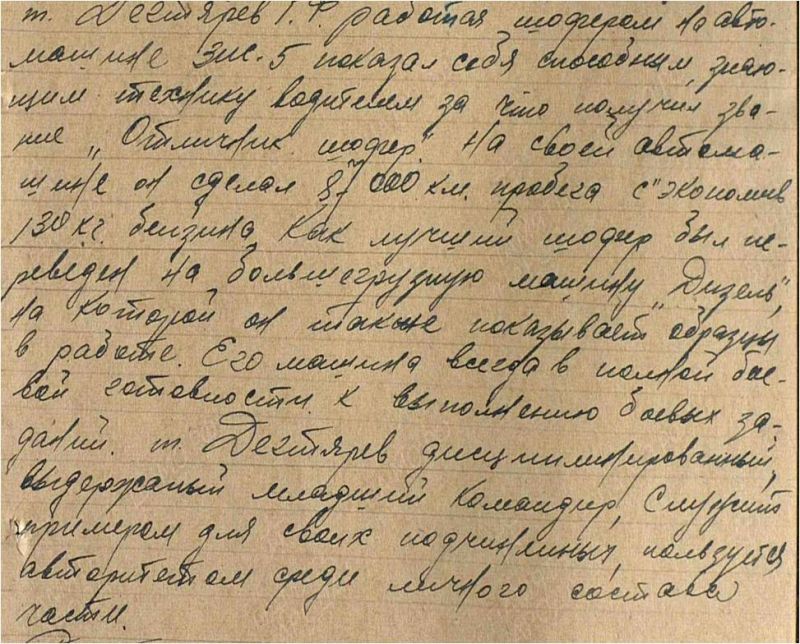 т. Дегтярев Г. Ф. работая шофером на авто-
машине ЗИС-5 показал себя способным, знаю-
щим технику водителем за что получил зва-
ние „Отличник шофер". На своей автома-
шине он сделал 87 000 км. пробега с экономив
130 кг. бензина Как лучший шофер был пе-
реведен на большегрузную машину „Дизель",
на которой он также показывает образцы
в работе. Его машина всегда в полной бое-
вой готовности к выполнению боевых за-
даний. т. Дегтярев дисциплинированный,
выдержаный младший командир, Служит
примером для своих подчиненных, пользуется
авторитетом среди личного состава
части.